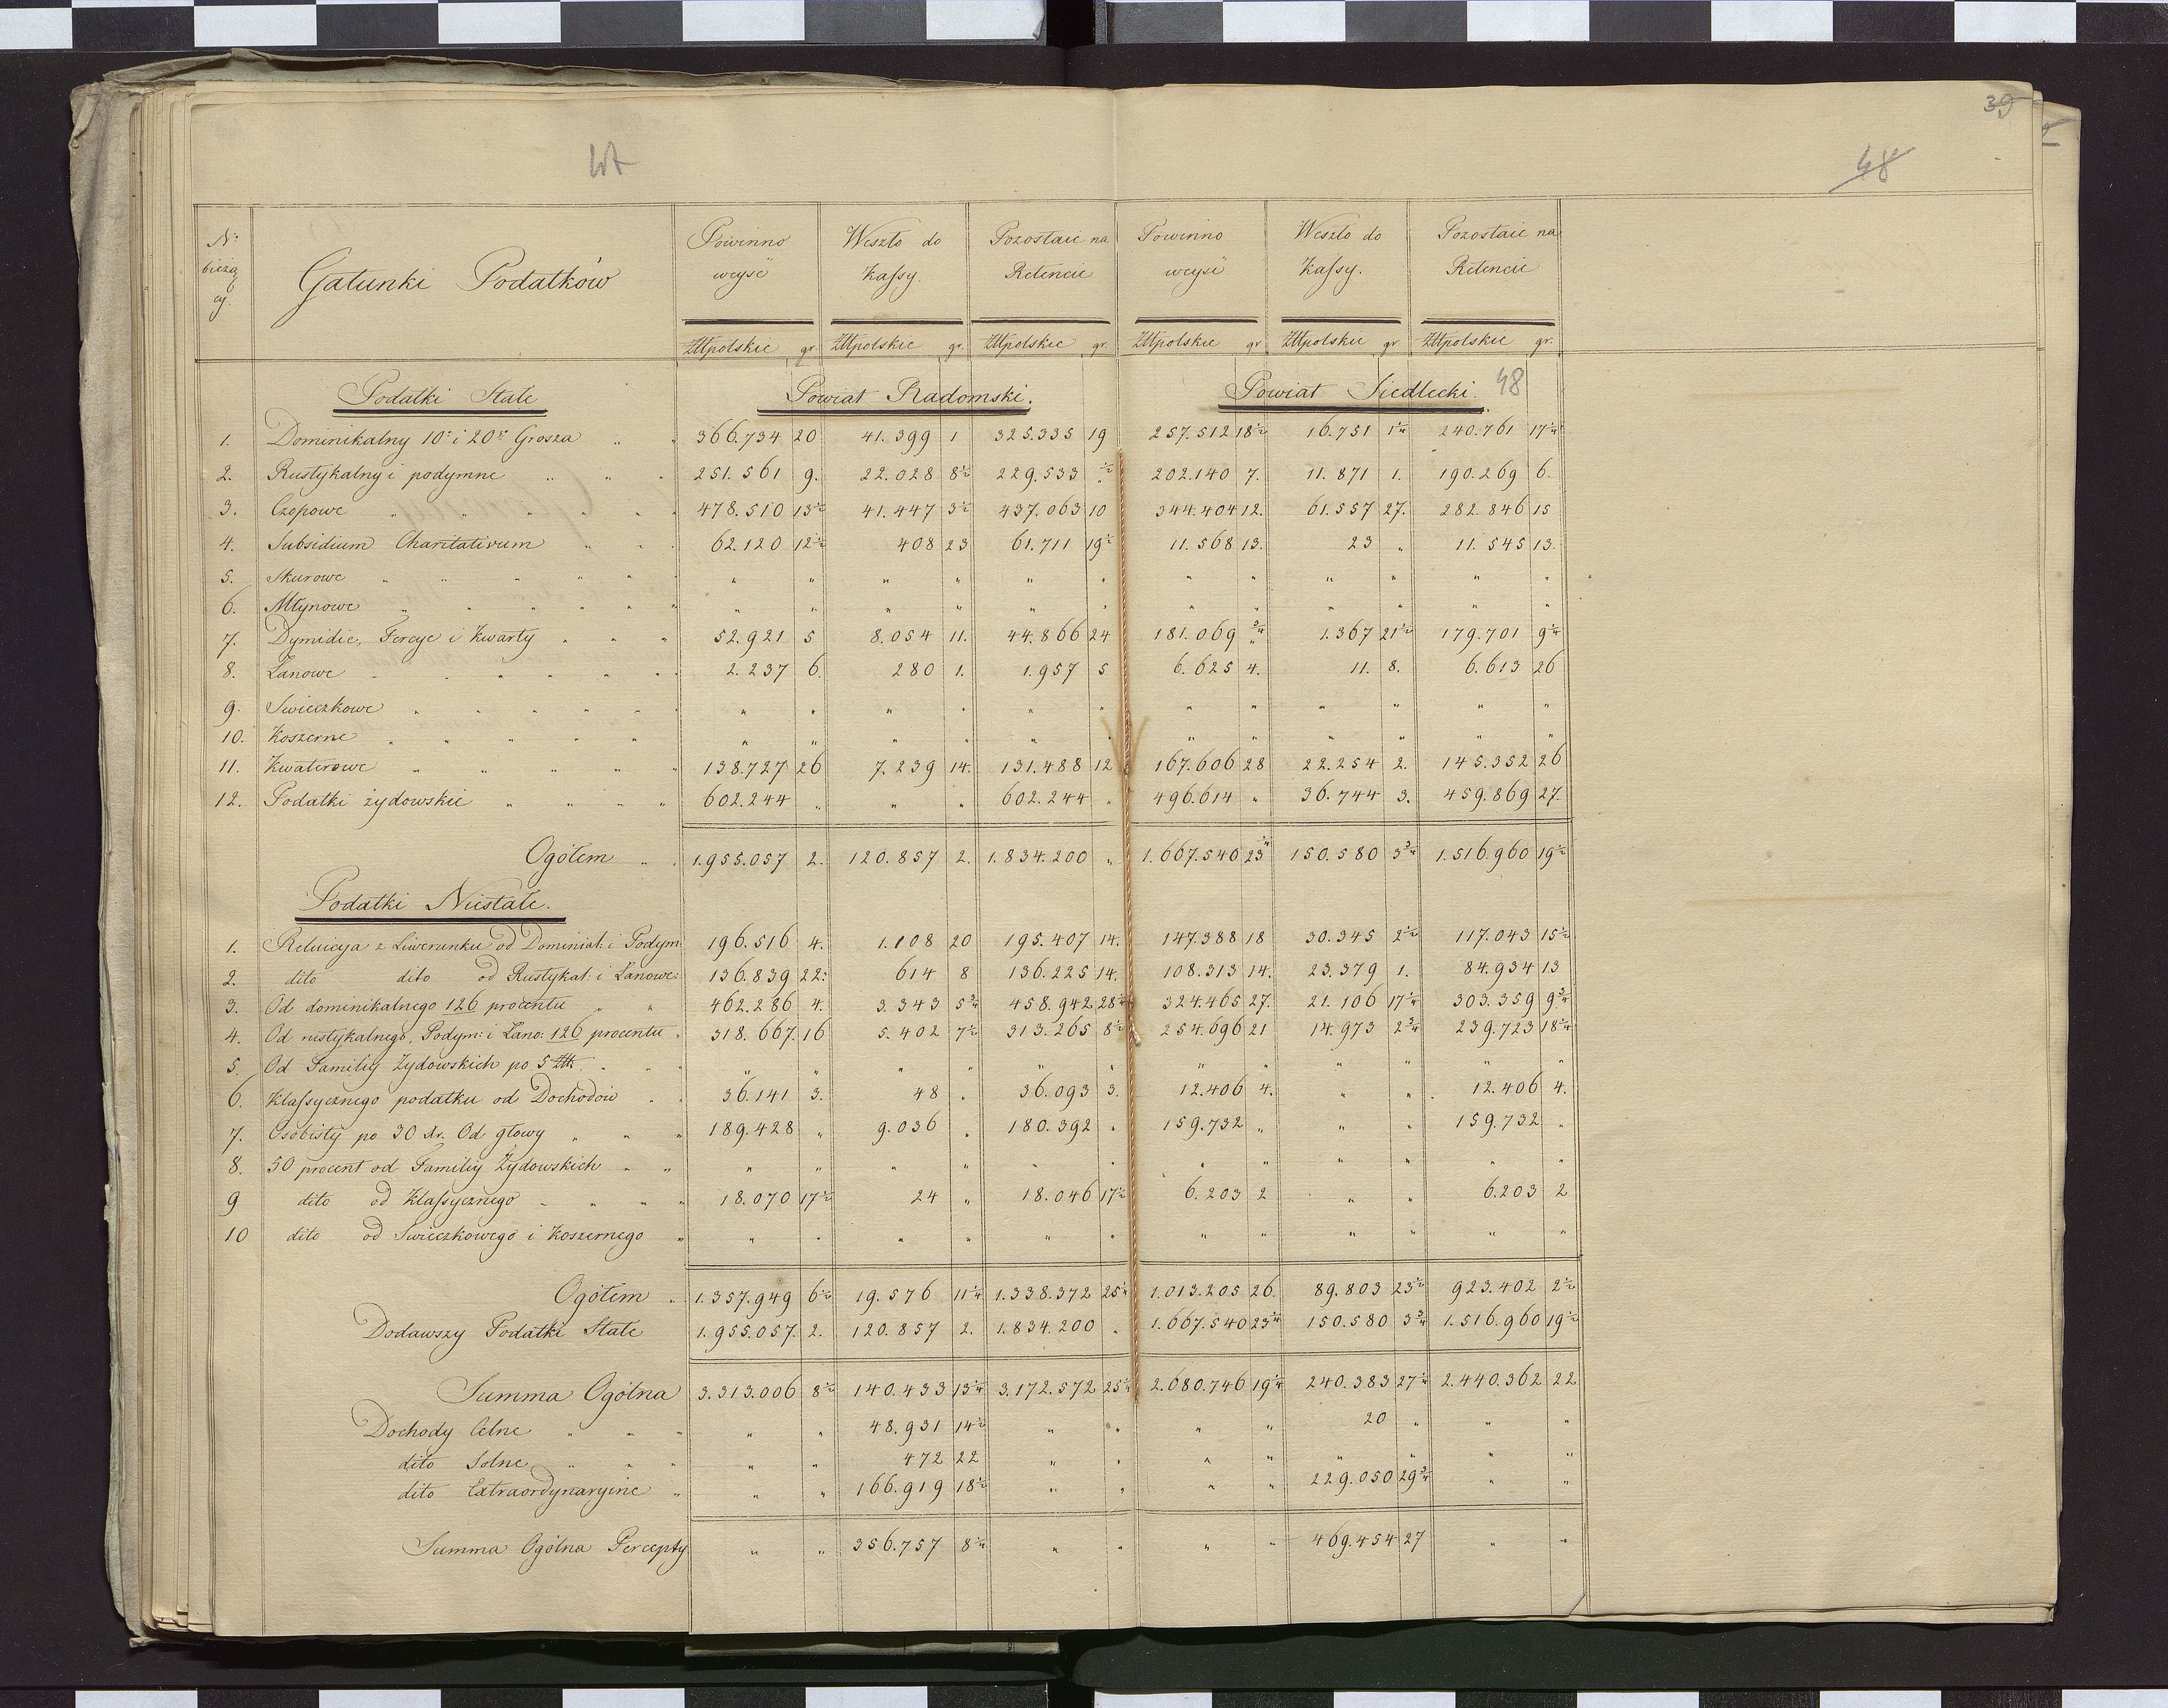 39
48
Nº bieżący.
Gatunki Podatków
Powinno weyść
Weszło do Kassy.
Pozostaie na Retencie
Powinno weyść
Weszło do Kassy.
Pozostaie na Retencie
Złłpolskie gr. Złłpolskie gr. Złłpolskie gr. Złłpolskie gr Złłpolskie gr Złłpolskie gr.
Podatki Stałe Powiat Radomski. Powiat Siedlecki. 48
1. Dominikalny 10º i 20º Grosza " " 366.734 20 41.399 1 325.335 19 257.512 18½ 16.751 1¼ 240.761 17¼
2. Rustykalny i podymne " " " 251.561 9. 22.028 8½ 229.533 ½ 202.140 7. 11.871 1. 190.269 6.
3. Czopowe " " " " " " 478.510 13½ 41.447 3½ 437.063 10 344.404 12. 61.557 27. 282.846 15
4. Subsidium Charitativum " " " 62.120 12½ 408 23 61.711 19½ 11.568 13. 23 " 11.545 13.
5. Skurowe " " " " " " " " " " " " " " " " " "
6. Młynowe " " " " " " " " " " " " " " " " " "
7. Dymidie, Tercye i Kwarty " " " 52.921 5 8.054 11. 44.866 24 181.069 ¾ 1.367 21½ 179.701 9¼
8. Łanowe " " " " " " 2.237 6. 280 1. 1.957 5 6.625 4. 11. 8. 6.613 26
9. Swieczkowe " " " " " " " " " " " " " " " " "
10. Koszerne " " " " " " " " " " " " " " " " "
11. Kwaterowe " " " " " 138.727 26 7.239 14. 131.488 12 167.606 28 22.254 2. 145.352 26
12. Podatki żydowskie " " " " 602.244 " " " 602.244 " 496.614 " 36.744 3. 459.869 27.
Ogółem " " 1.955.057 2. 120.857 2. 1.834.200 " 1.667.540 23¼ 150.580 3¾ 1.516.960 19½
Podatki Niestałe.
1. Reluicya z Liwerunku od Dominial: i Podym: 196.516 4. 1.108 20 195.407 14. 147.388 18 30.345 2½ 117.043 15½
2. dito dito od Rustykal: i Łanowe: 136.839 22. 614 8 136.225 14. 108.313 14. 23.379 1. 84.934 13
3. Od dominikalnego 126 procentu " " 462.286 4. 3.343 5¾ 458.942 28¼ 324.465 27. 21.106 17¼ 303.359 9¾
4. Od rustykalnego, Podym: i Łano: 126 procentu " 318.667. 16 5.402 7½ 313.265 8½ 254.696 21 14.973 2¾ 239.723 18¼
5. Od Familiy Żydowskich po 5 Złł. " " " " " " " " " " " " " " "
6. Klassycznego podatku od Dochodów " " 36.141 3. 48 " 36.093 3. 12.406 4. " " 12.406 4.
7. Osobisty po 30 Xr. Od głowy " " " 189.428 " 9.036 " 180.392 " 159.732 " " " 159.732 "
8. 50 procent od Familiy Żydowskich " " " " " " " " " " " " " "
9 dito od Klassycznego " " " " 18.070 17½ 24 " 18.046 17½ 6.203 2 " " 6.203 2
10 dito od Swieczkowego i Koszernego " " " " " " " " " " " " "
Ogółem " 1.357.949 6½ 19.576 11¼ 1.338.372 25¼ 1.013.205 26. 89.803 23½ 923.402 2½
Dodawszy Podatki Stałe 1.955.057. 2. 120.857 2. 1.834.200 " 1.667.540 23¼ 150.580 3¾ 1.516.960 19½
Summa Ogólna 3.313.006 8½ 140.433 13¼ 3.172.572 25¼ 2.680.746 19¼ 240.383 27¼ 2.440.362 22
Dochody Celne " " " " " 48.931 14½ " " " " 20 " " "
dito Solne " " " " " 472 22 " " " " " " " "
dito Extraordynaryine " " " 166.919 18½ " " " " 229.050 29¾ " "
Summa Ogólna Percepty " " 356.757 8¼ " " " " 469.454 27 " "